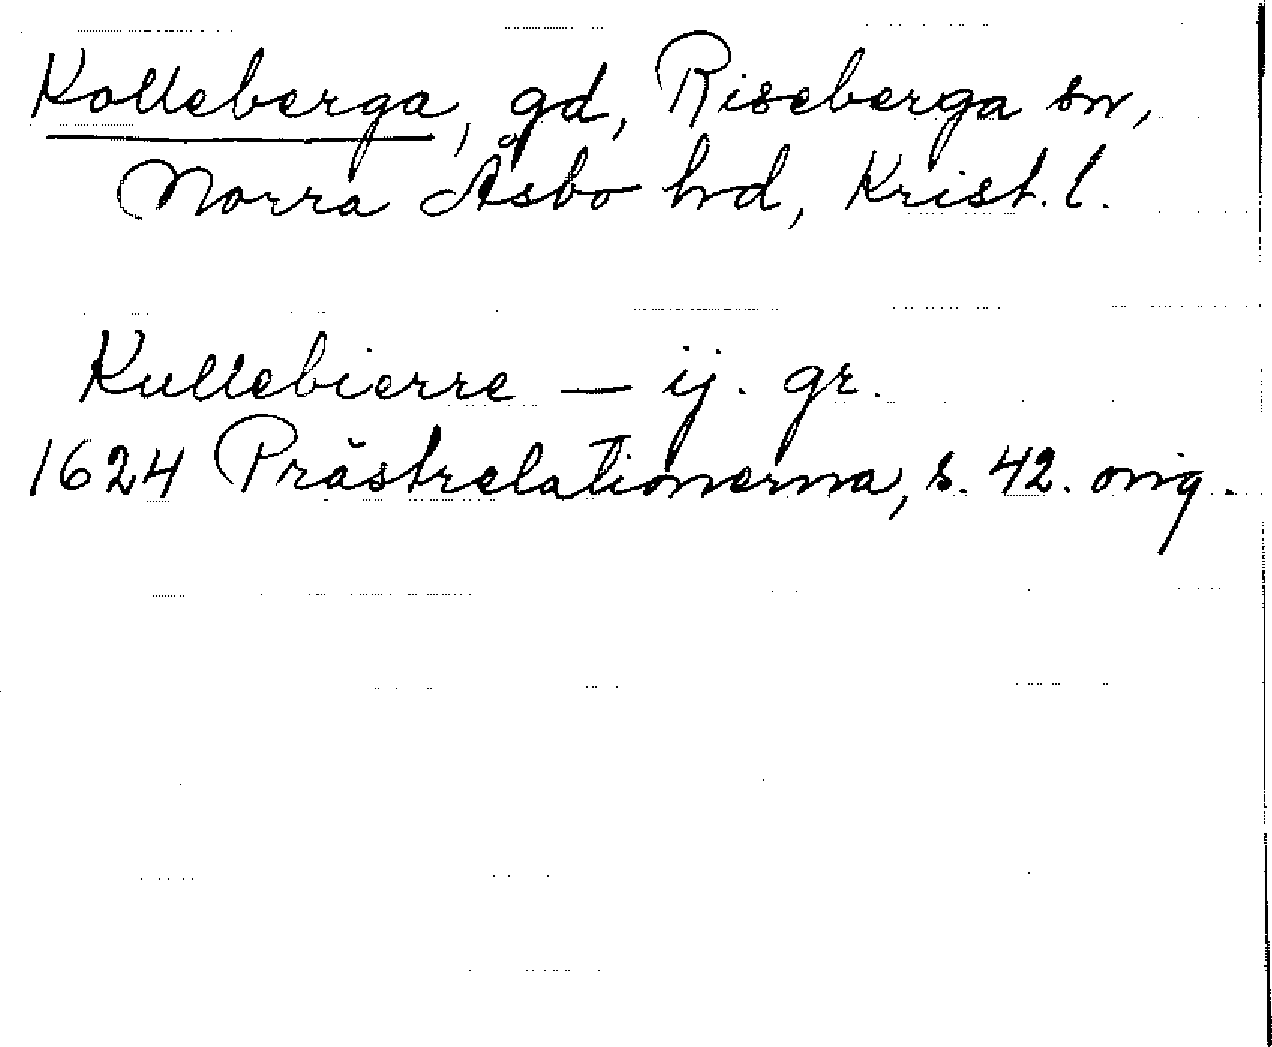 Kolleberga, gd, Riseberga sn,
Norra Åsbo hd, Krist. l.
Kullebierre — ij. gr.
1624 Prästrelationerna, s. 42. orig.